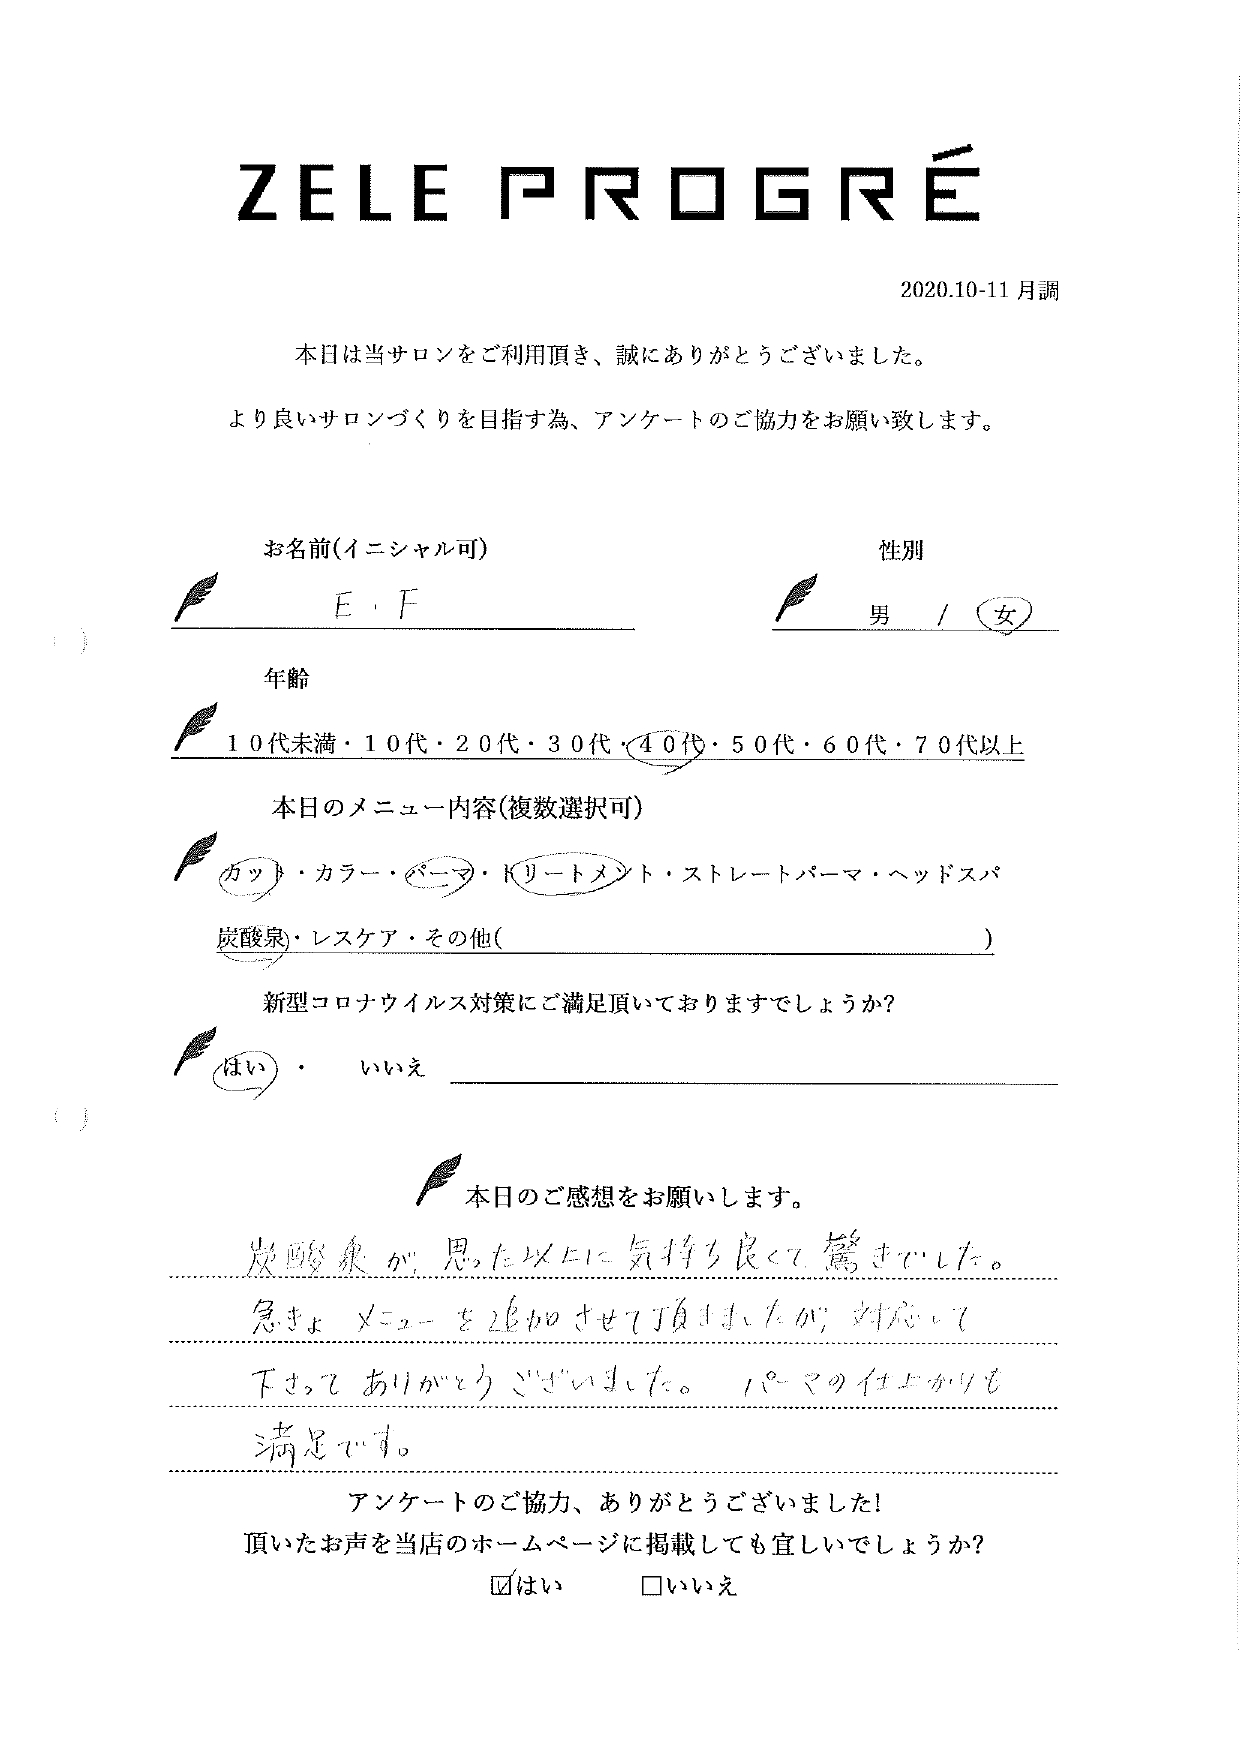 ZELE PROGRÉ
2020.10-11 月調
本日は当サロンをご利用頂き、誠にありがとうございました。
より良いサロンづくりを目指す為、アンケートのご協力をお願い致します。
お名前(イニシャル可) 性別
E.F 男 / 女
年齢
１０代未満・１０代・２０代・３０代・４０代・５０代・６０代・７０代以上
本日のメニュー内容(複数選択可)
カット・カラー・パーマ・トリートメント・ストレートパーマ・ヘッドスパ
炭酸泉・レスケア・その他( )
新型コロナウイルス対策にご満足頂いておりますでしょうか?
はい ・ いいえ
本日のご感想をお願いします。
炭酸泉が、思った以上に気持ち良くて驚きでした。
急きょメニューを追加させて頂きましたが、対応して
下さってありがとうございました。 パーマの仕上がりも
満足です。
アンケートのご協力、ありがとうございました!
頂いたお声を当店のホームページに掲載しても宜しいでしょうか?
☑はい □いいえ